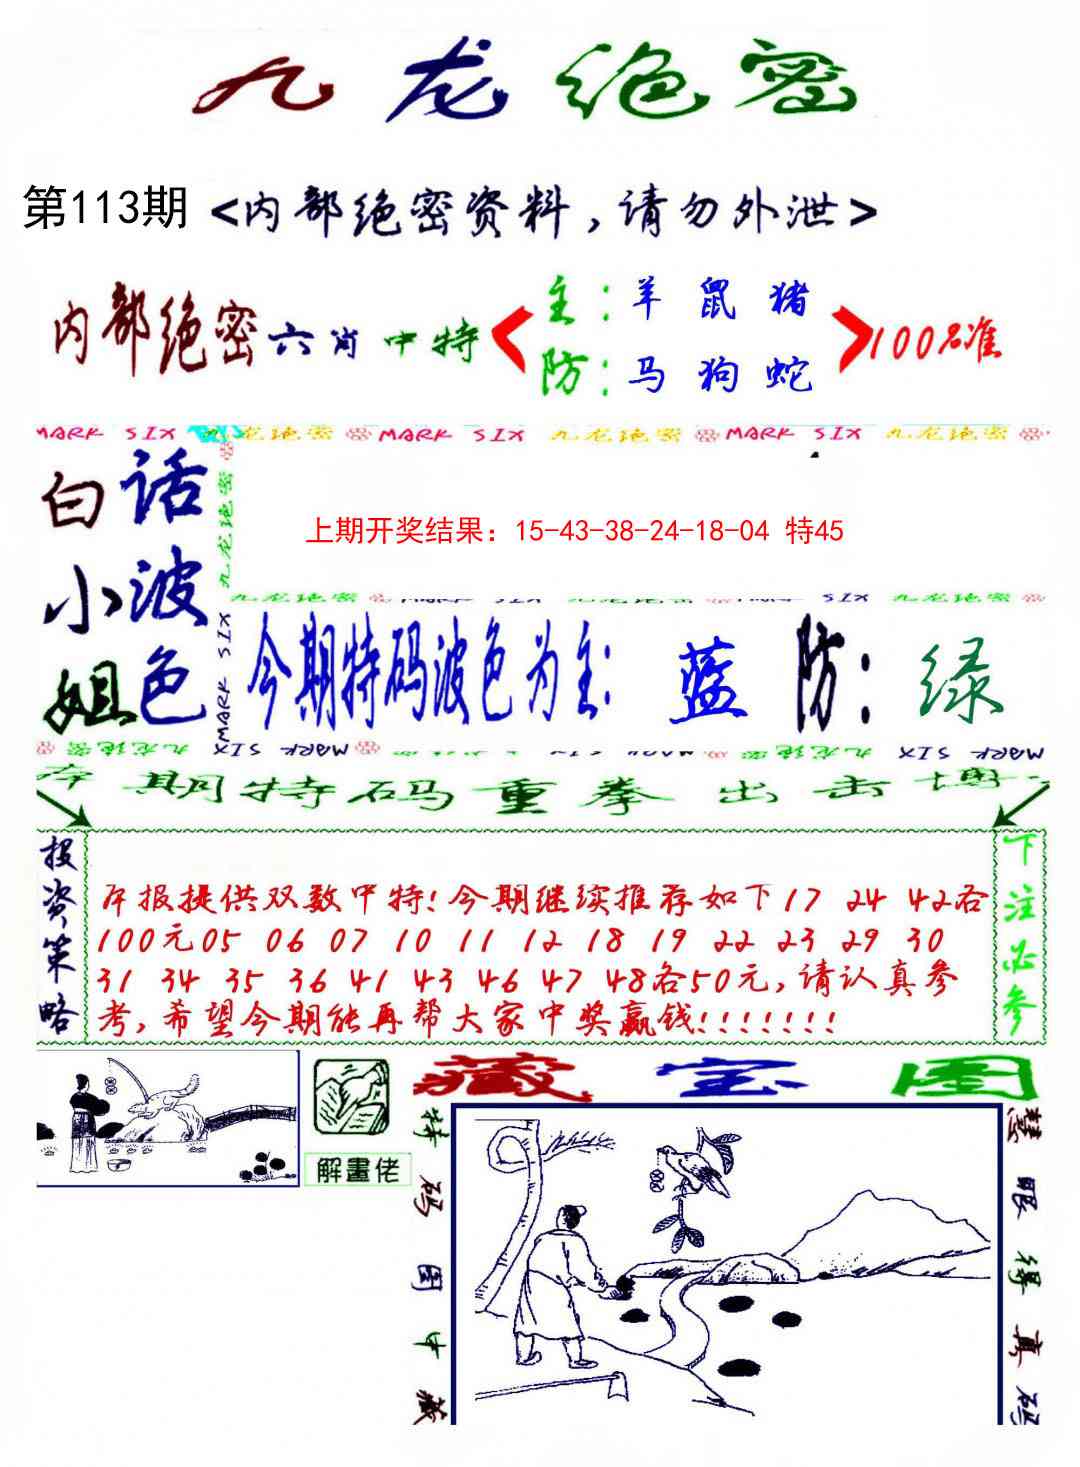 九龙绝密
第113期 <内部绝密资料,请勿外泄>
内部绝密六肖中特
主:羊 鼠 猪
防:马 狗 蛇
100%准
MARK SIX 九龙绝密 MARK SIX 九龙绝密 MARK SIX 九龙绝密
白话
小波
姐色
九龙绝密
MARK SIX
上期开奖结果：15-43-38-24-18-04 特45
九龙绝密 MARK SIX 九龙绝密 MARK SIX 九龙绝密
今期特码波色为主: 蓝 防: 绿
九龙绝密 MARK SIX MARK SIX 九龙绝密 MARK SIX 九龙绝密 MARK SIX
本期特码重拳出击博
投资策略
本报提供双数中特!今期继续推荐如下17 24 42各
100元05 06 07 10 11 12 18 19 22 23 29 30
31 34 35 36 41 43 46 47 48各50元,请认真参
考,希望今期能再帮大家中奖赢钱!!!!!!!
下注必参
解畫佬
藏宝图
特码图中藏
慧眼得真码